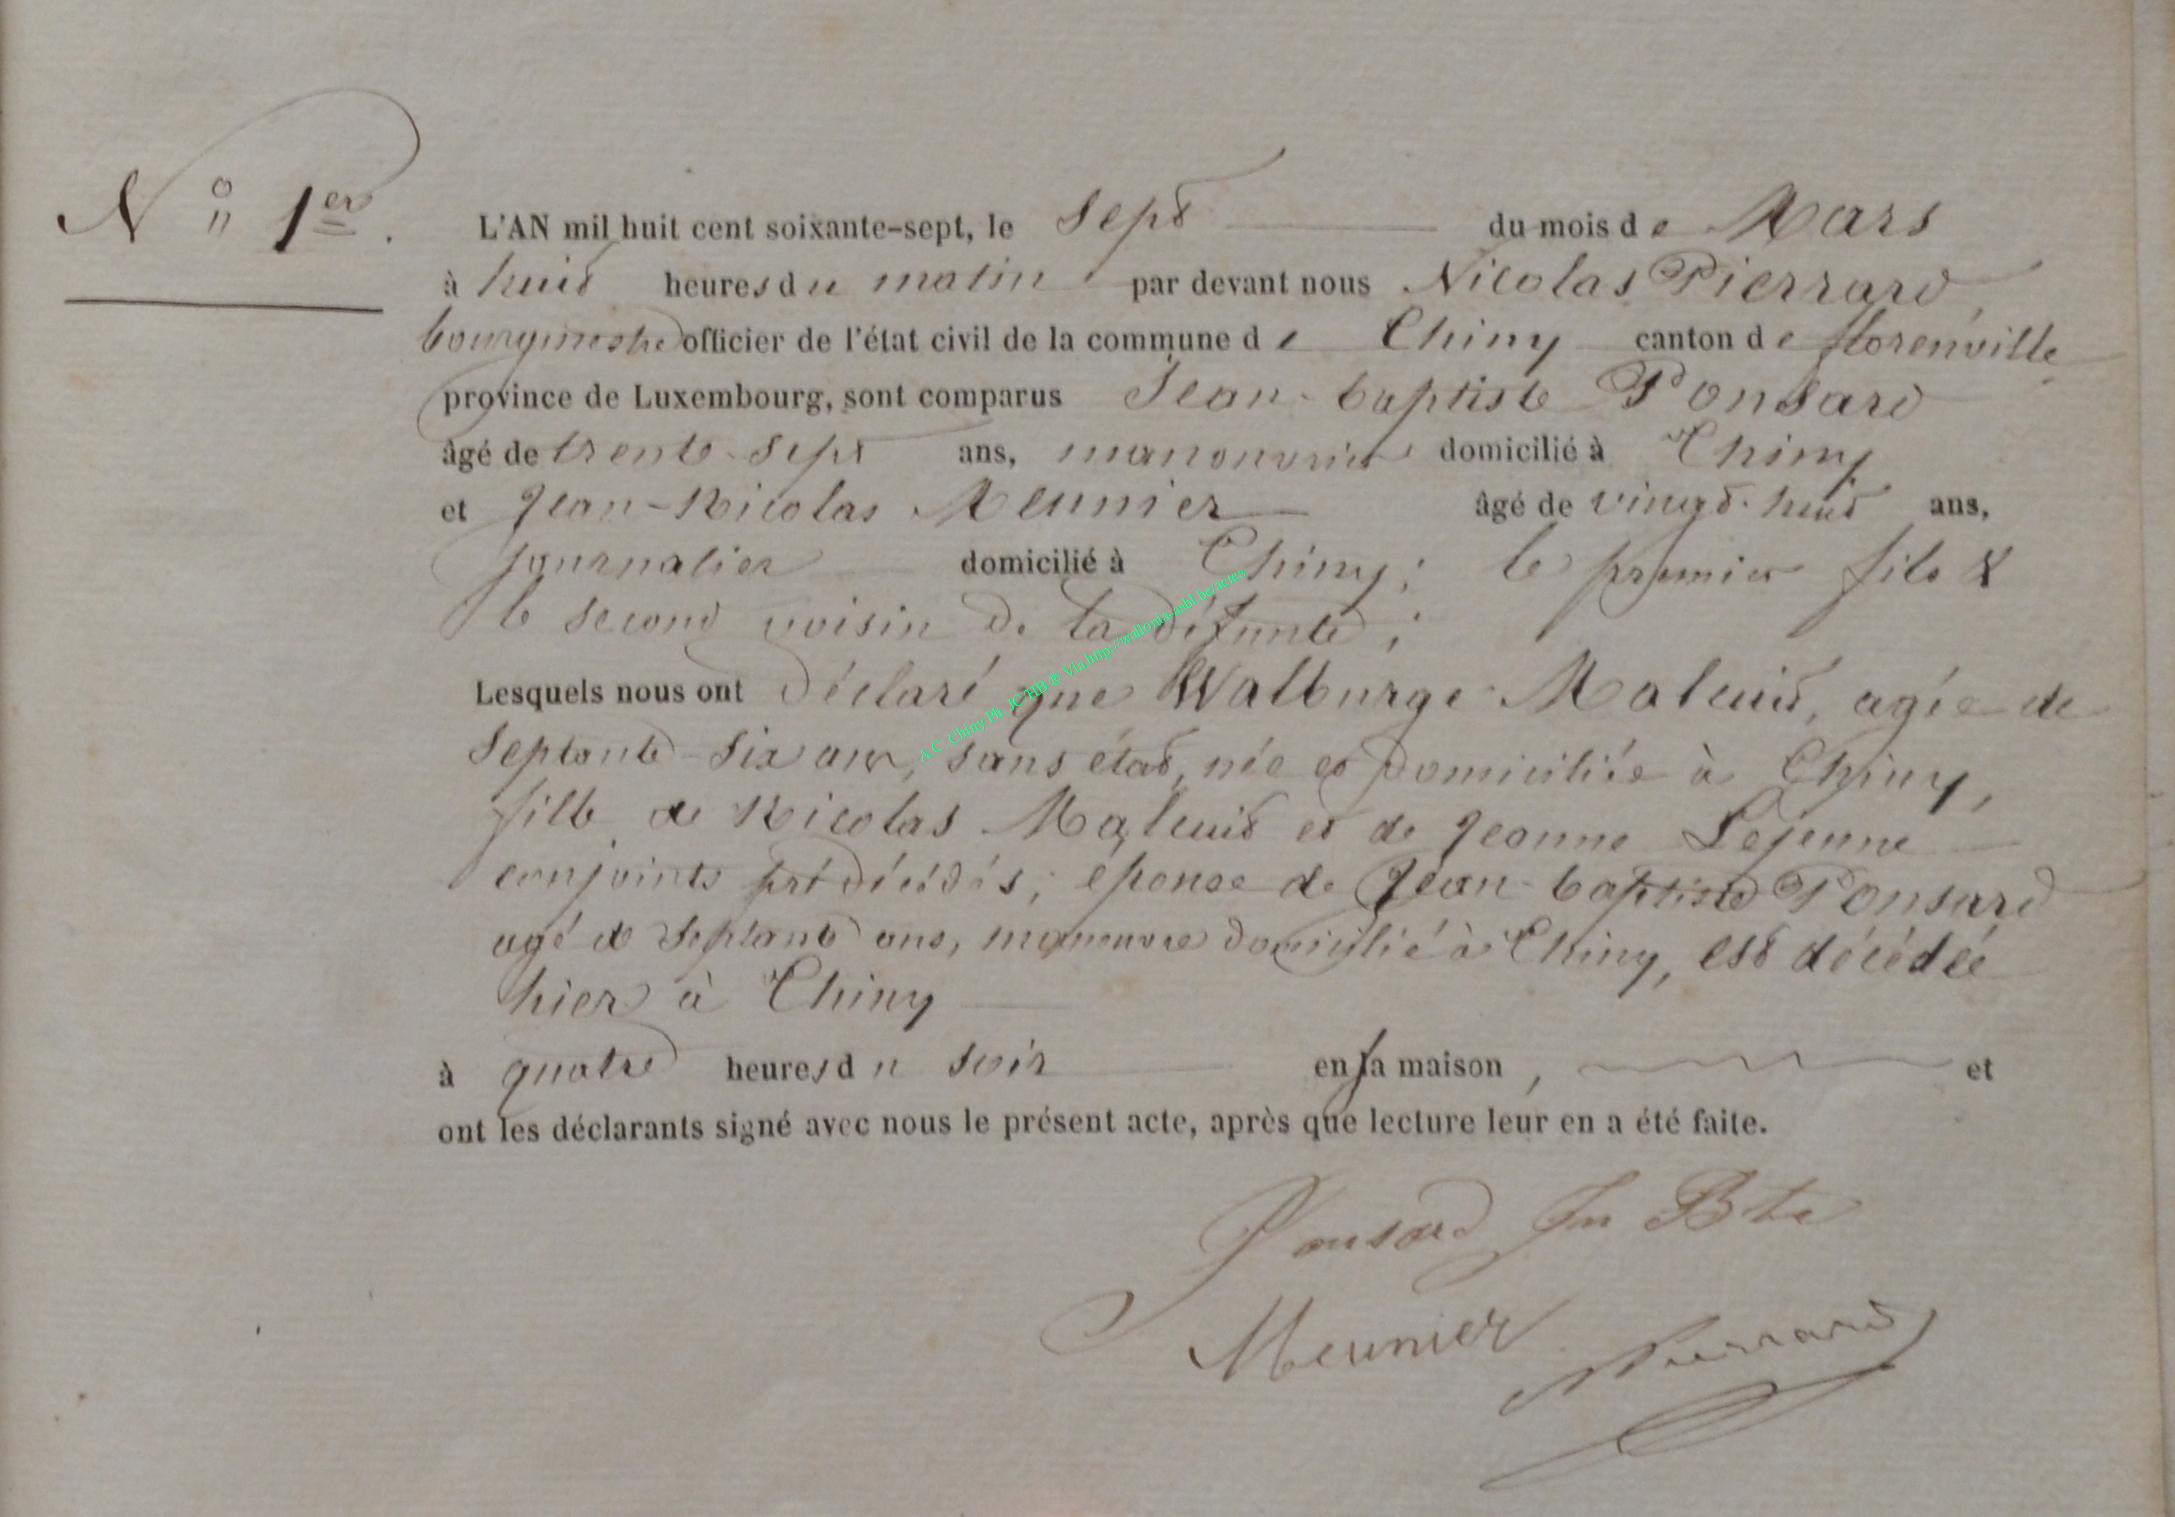 N° 1er.
L'AN mil huit cent soixante-sept, le sept du mois de Mars
à huit heures du matin par devant nous Nicolas Pierrard,
bourgmestre officier de l'état civil de la commune de Chiny canton de florenville
province de Luxembourg, sont comparus Jean-baptiste Ponsard
âgé de trente-sept ans, manouvrier domicilié à Chiny
et Jean-Nicolas Meunier âgé de vingt-huit ans,
journalier domicilié à Chiny; le premier fils &
le second voisin de la défunte;
Lesquels nous ont déclaré que Walburge Maluit, agée de
septante-six ans, sans état, née et domiciliée à Chiny,
fille de Nicolas Maluit et de Jeanne Lejeune
conjoints prédécédés; épouse de Jean-baptiste Ponsard
agé de septante ans, manouvre domicilié à Chiny, est décédée
hier à Chiny
à quatre heures du soir en sa maison, et
ont les déclarants signé avec nous le présent acte, après que lecture leur en a été faite.
Ponsard Jn Bte
Meunier
NPierrard
A.C. Chiny Ph. JC HB & Via http://wallonia-asbl.be/actes